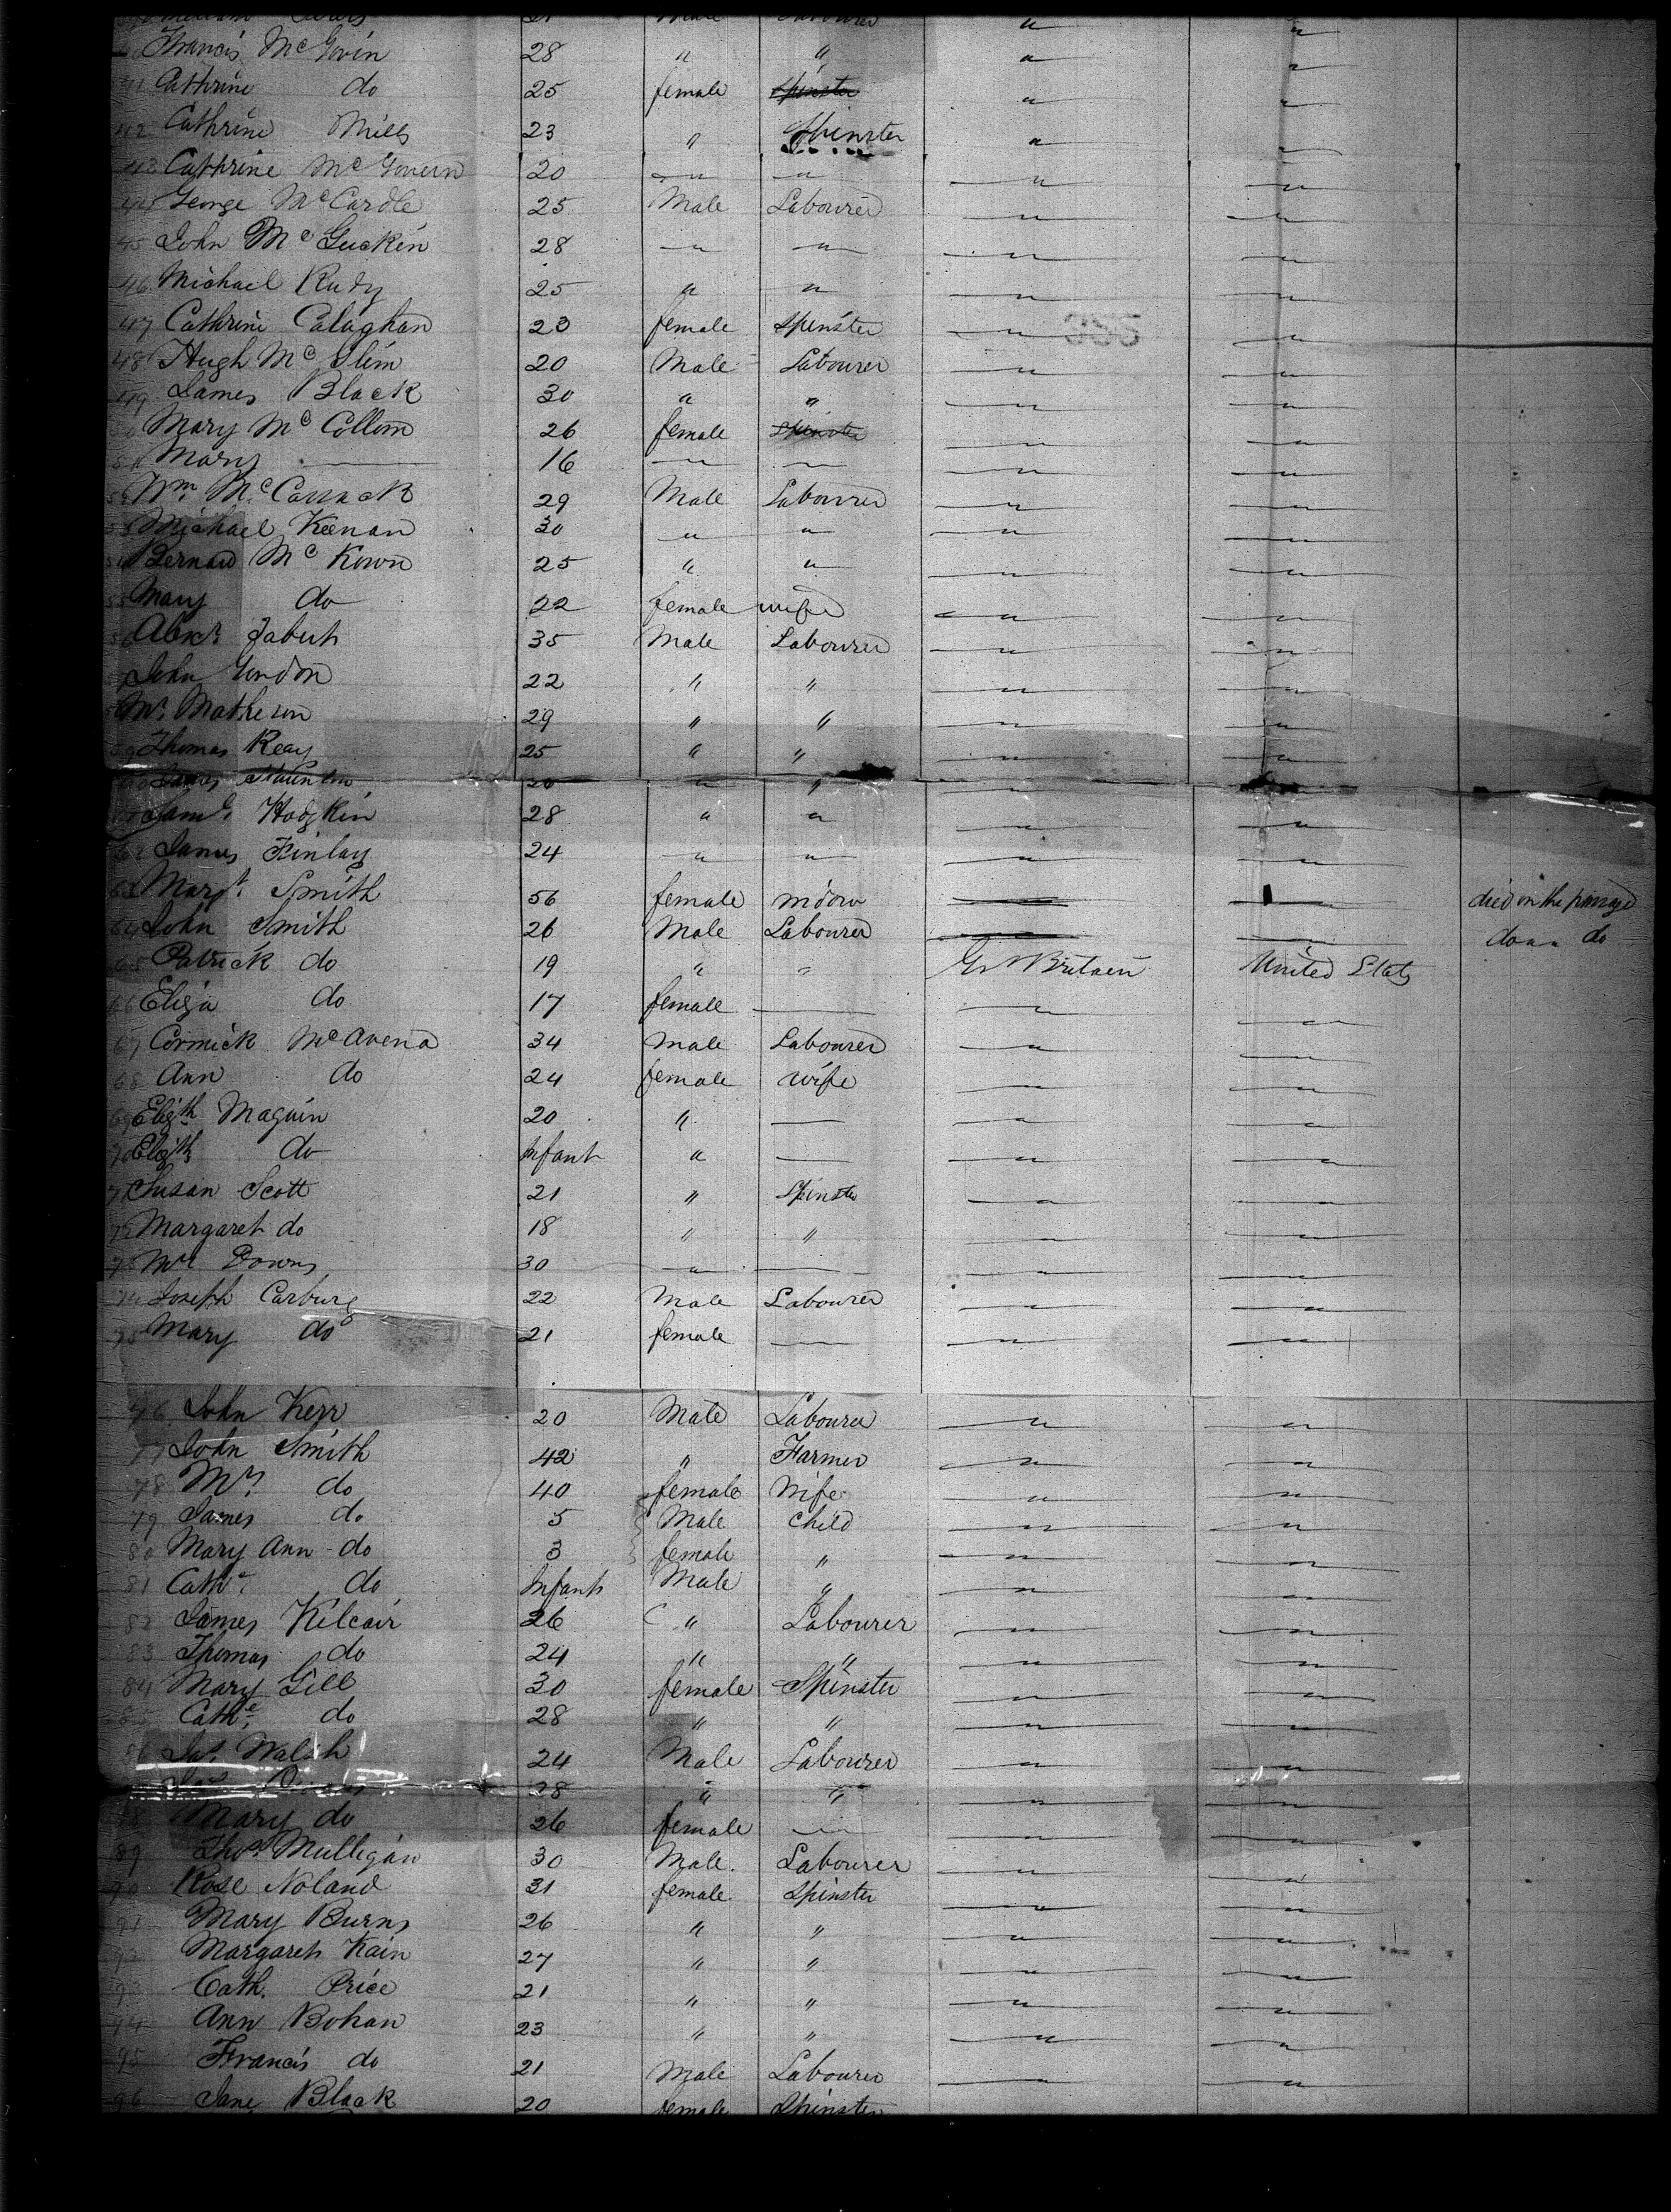 Francis McGovin 28 " " " "
41 Cathrine do 25 female Spinster " "
42 Cathrine Mills 23 " Spinster " "
43 Cathrine McGovern 20 " " " "
44 George McCardle 25 Male Labourer " "
45 John McGucken 28 " " " "
46 Michael Rudy 25 " " " "
47 Cathrine Calaghan 23 female Spinster " "
48 Hugh McSlim 20 Male Labourer " "
49 James Black 30 " " " "
Mary McCollom 26 female Spinster " "
51 Mary — 16 " " " "
Wm. Mc 29 Male Labourer " "
53 Michael Keenan 30 " " " "
Bernard McKown 25 " " " "
55 Mary do 22 female wife " "
Alexr. 35 Male Labourer " "
John Gordon 22 " " " "
Mr. Matheson 29 " " " "
59 Thomas Reay 25 " " " "
60 James " " " "
Saml. Hodgkin 28 " " " "
62 James Finlay 24 " " " "
63 Margt. Smith 56 female widow — — died on the passage
64 John Smith 26 Male Labourer — — do " " do
65 Patrick do 19 " " Gr Britain United Stats
66 Eliza do 17 female — " "
67 Cormick McAvena 34 Male Labourer " "
68 Ann do 24 female wife " "
69 Elizth. Maguin 20 " — " "
70 Elizth do Infant " — " "
71 Susan Scott 21 " Spinster " "
72 Margaret do 18 " " " "
73 Mrs Downs 30 " — " "
74 Joseph Carbury 22 Male Labourer " "
75 Mary do 21 female — " "
76 John Kerr 20 Male Labourer " "
77 John Smith 42 " Farmer " "
78 Mrs. do 40 female Wife " "
79 James do 5 Male Child " "
80 Mary Ann do 3 female " " "
81 Cathe. do Infant Male " " "
82 James Kilcair 26 " Labourer " "
83 Thomas do 24 " " " "
84 Mary Gill 30 female Spinster " "
85 Cathe. do 28 " " " "
86 Jas. Walsh 24 Male Labourer " "
28 " " " "
88 Mary do 26 female " " "
89 Thos. Mulligan 30 Male. Labourer " "
90 Rose Noland 31 female Spinster " "
91 Mary Burns 26 " " " "
92 Margaret Kain 27 " " " "
93 Cath. Price 21 " " " "
94 Ann Bohan 23 " " " "
95 Francis do 21 Male Labourer " "
96 Jane Black 20 female Spinster